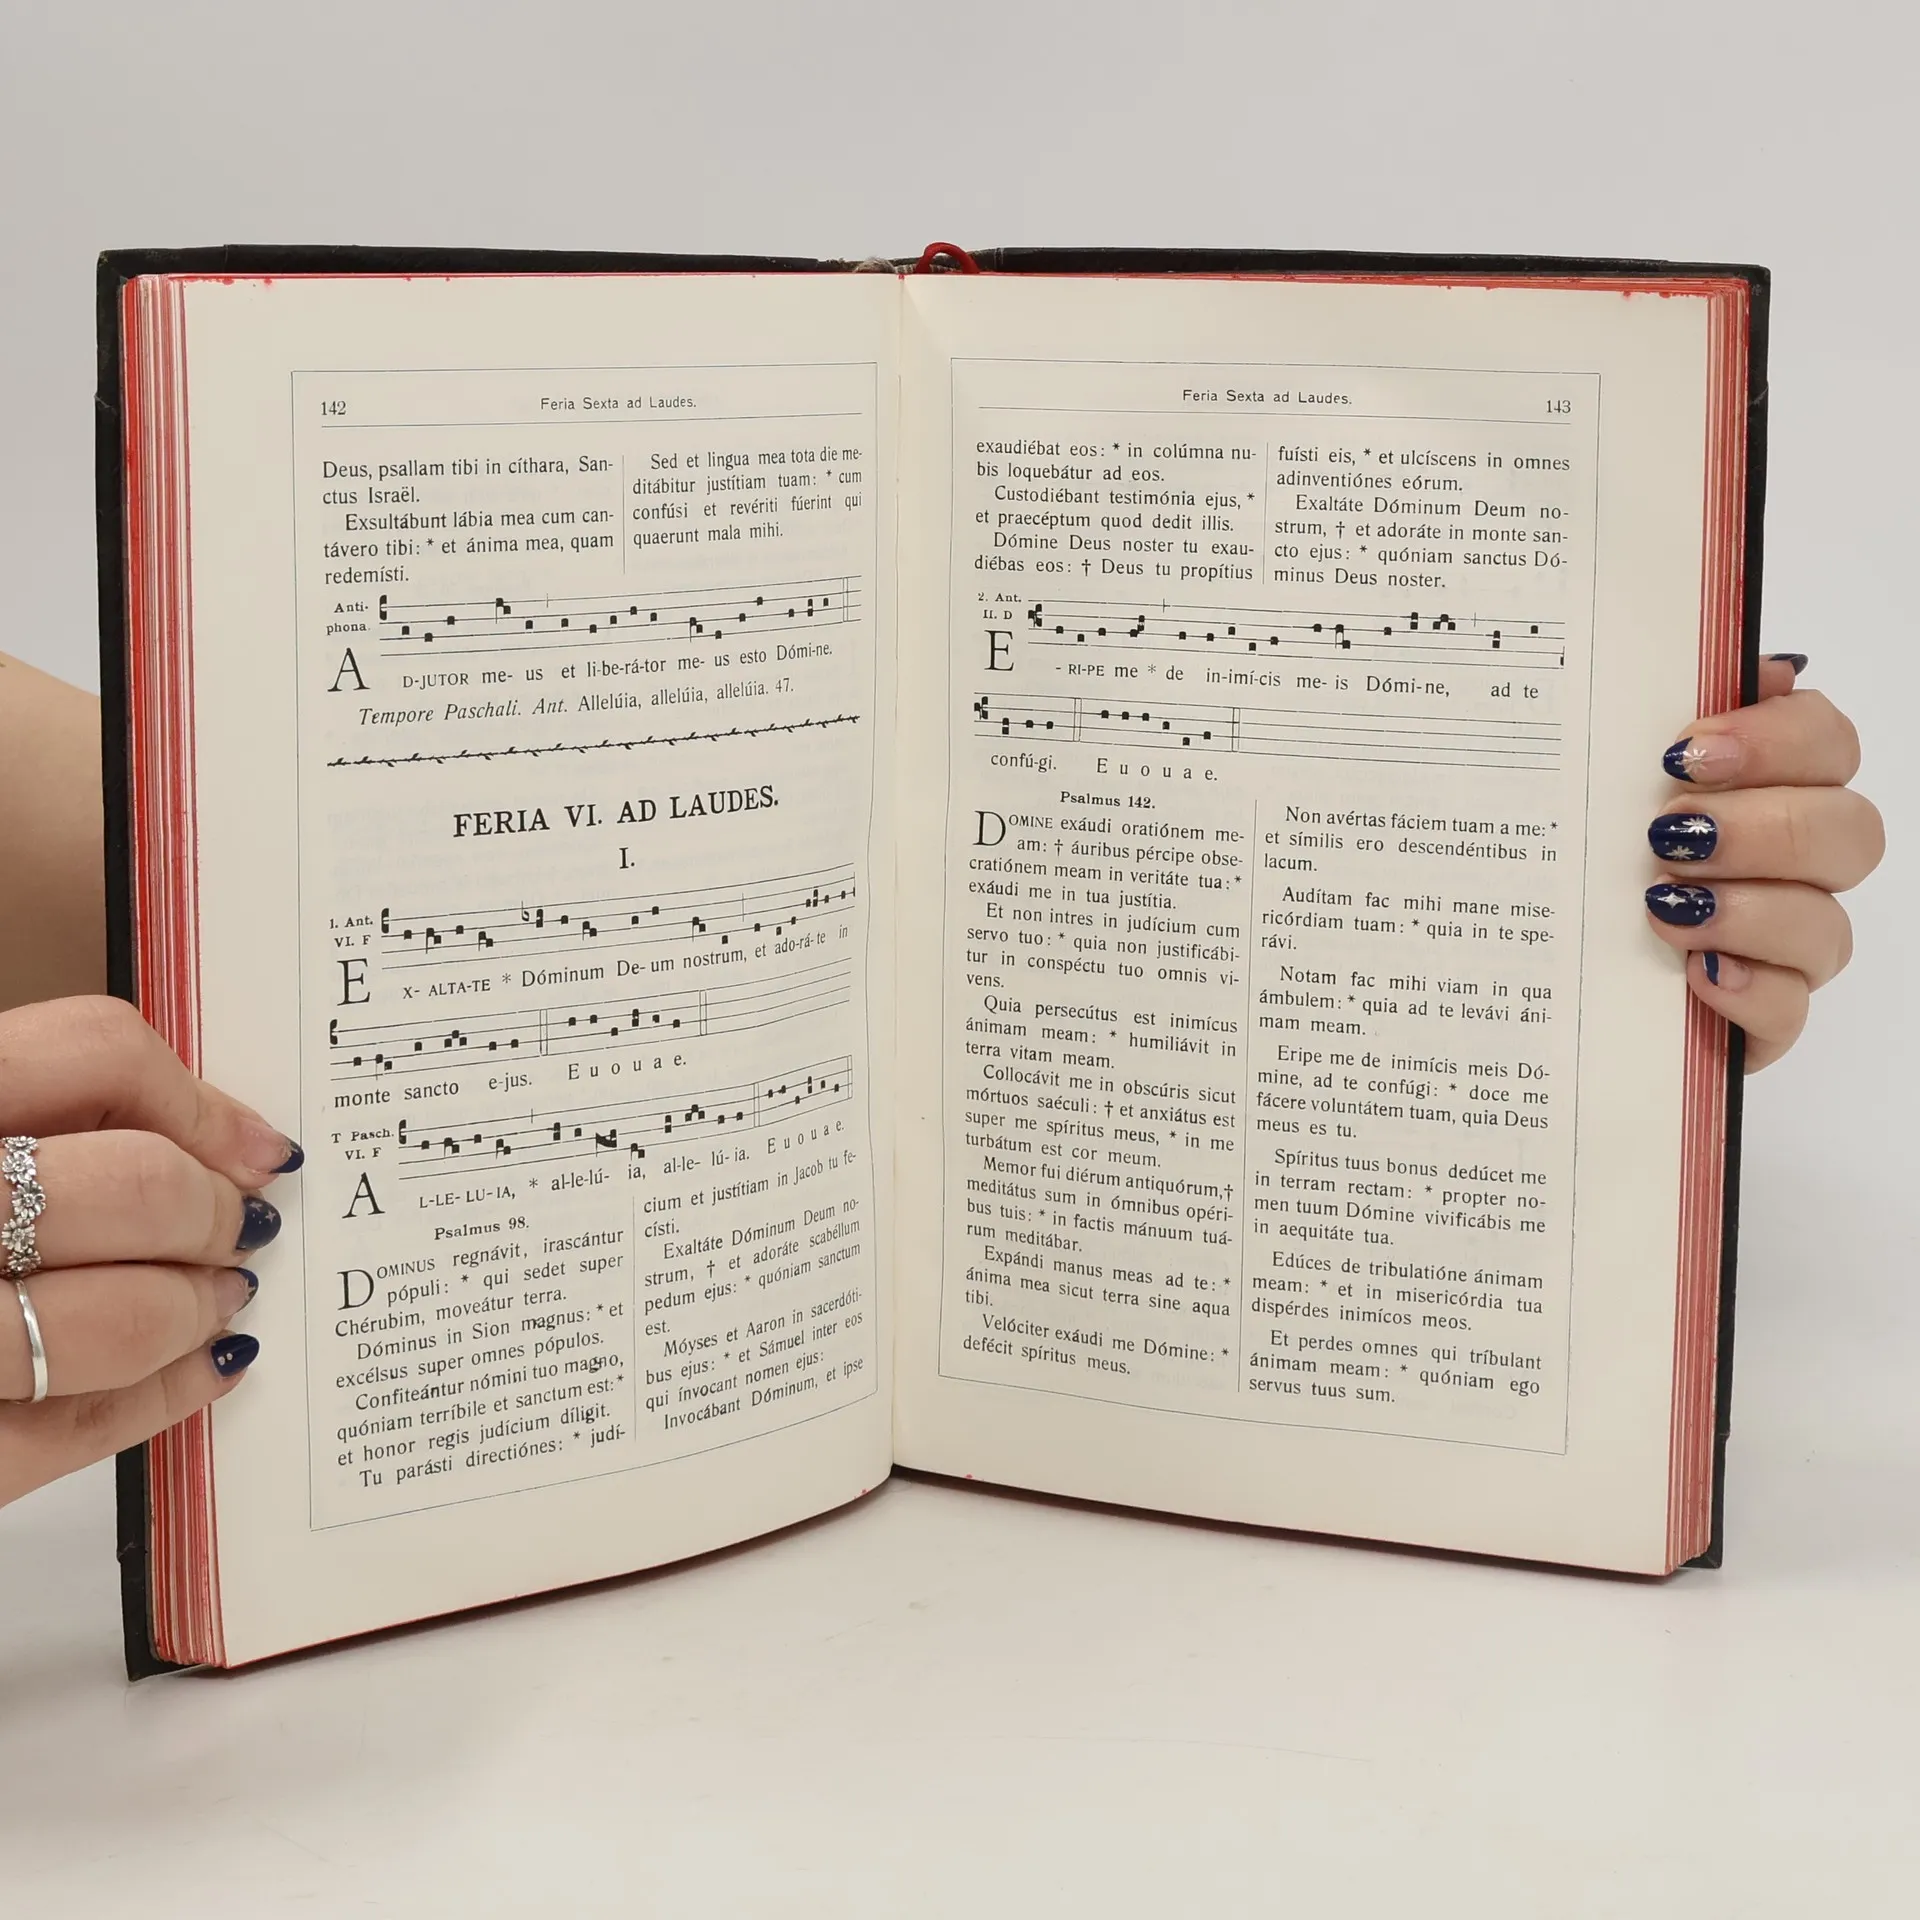 142
Feria Sexta ad Laudes.
Deus, psallam tibi in cíthara, San-
ctus Israël.
Exsultábunt lábia mea cum can-
távero tibi: * et ánima mea, quam
redemísti.
Sed et lingua mea tota die me-
ditábitur justítiam tuam: * cum
confúsi et revériti fúerint qui
quaerunt mala mihi.
Anti-
phona.
AD-JUTOR me- us et li-be-rá-tor me- us esto Dómi-ne.
Tempore Paschali. Ant. Allelúia, allelúia, allelúia. 47.
FERIA VI. AD LAUDES.
I.
1. Ant.
VI. F
EX- ALTA-TE * Dóminum De- um nostrum, et ado-rá-te in
monte sancto e-jus. E u o u a e.
T Pasch.
VI. F
AL-LE- LU-IA, * al-le-lú- ia, al-le- lú- ia. E u o u a e.
Psalmus 98.
DOMINUS regnávit, irascántur
pópuli: * qui sedet super
Chérubim, moveátur terra.
Dóminus in Sion magnus: * et
excélsus super omnes pópulos.
Confiteántur nómini tuo magno,
quóniam terríbile et sanctum est: *
et honor regis judícium díligit.
Tu parásti directiónes: * judí-
cium et justítiam in Jacob tu fe-
císti.
Exaltáte Dóminum Deum no-
strum, † et adoráte scabéllum
pedum ejus: * quóniam sanctum
est.
Móyses et Aaron in sacerdóti-
bus ejus: * et Sámuel inter eos
qui ínvocant nomen ejus:
Invocábant Dóminum, et ipse
Feria Sexta ad Laudes.
143
exaudiébat eos: * in colúmna nu-
bis loquebátur ad eos.
Custodiébant testimónia ejus, *
et praecéptum quod dedit illis.
Dómine Deus noster tu exau-
diébas eos: † Deus tu propítius
fuísti eis, * et ulcíscens in omnes
adinventiónes eórum.
Exaltáte Dóminum Deum no-
strum, † et adoráte in monte san-
cto ejus: * quóniam sanctus Dó-
minus Deus noster.
2. Ant.
II. D
E- RI-PE me * de in-imí-cis me- is Dómi-ne, ad te
confú-gi. E u o u a e.
Psalmus 142.
DOMINE exáudi oratiónem me-
am: † áuribus pércipe obse-
cratiónem meam in veritáte tua: *
exáudi me in tua justítia.
Et non intres in judícium cum
servo tuo: * quia non justificábi-
tur in conspéctu tuo omnis vi-
vens.
Quia persecútus est inimícus
ánimam meam: * humiliávit in
terra vitam meam.
Collocávit me in obscúris sicut
mórtuos saéculi: † et anxiátus est
super me spíritus meus, * in me
turbátum est cor meum.
Memor fui diérum antiquórum, †
meditátus sum in ómnibus opéri-
bus tuis: * in factis mánuum tuá-
rum meditábar.
Expándi manus meas ad te: *
ánima mea sicut terra sine aqua
tibi.
Velóciter exáudi me Dómine: *
defécit spíritus meus.
Non avértas fáciem tuam a me: *
et símilis ero descendéntibus in
lacum.
Audítam fac mihi mane mise-
ricórdiam tuam: * quia in te spe-
rávi.
Notam fac mihi viam in qua
ámbulem: * quia ad te levávi áni-
mam meam.
Eripe me de inimícis meis Dó-
mine, ad te confúgi: * doce me
fácere voluntátem tuam, quia Deus
meus es tu.
Spíritus tuus bonus dedúcet me
in terram rectam: * propter no-
men tuum Dómine vivificábis me
in aequitáte tua.
Edúces de tribulatióne ánimam
meam: * et in misericórdia tua
dispérdes inimícos meos.
Et perdes omnes qui tríbulant
ánimam meam: * quóniam ego
servus tuus sum.